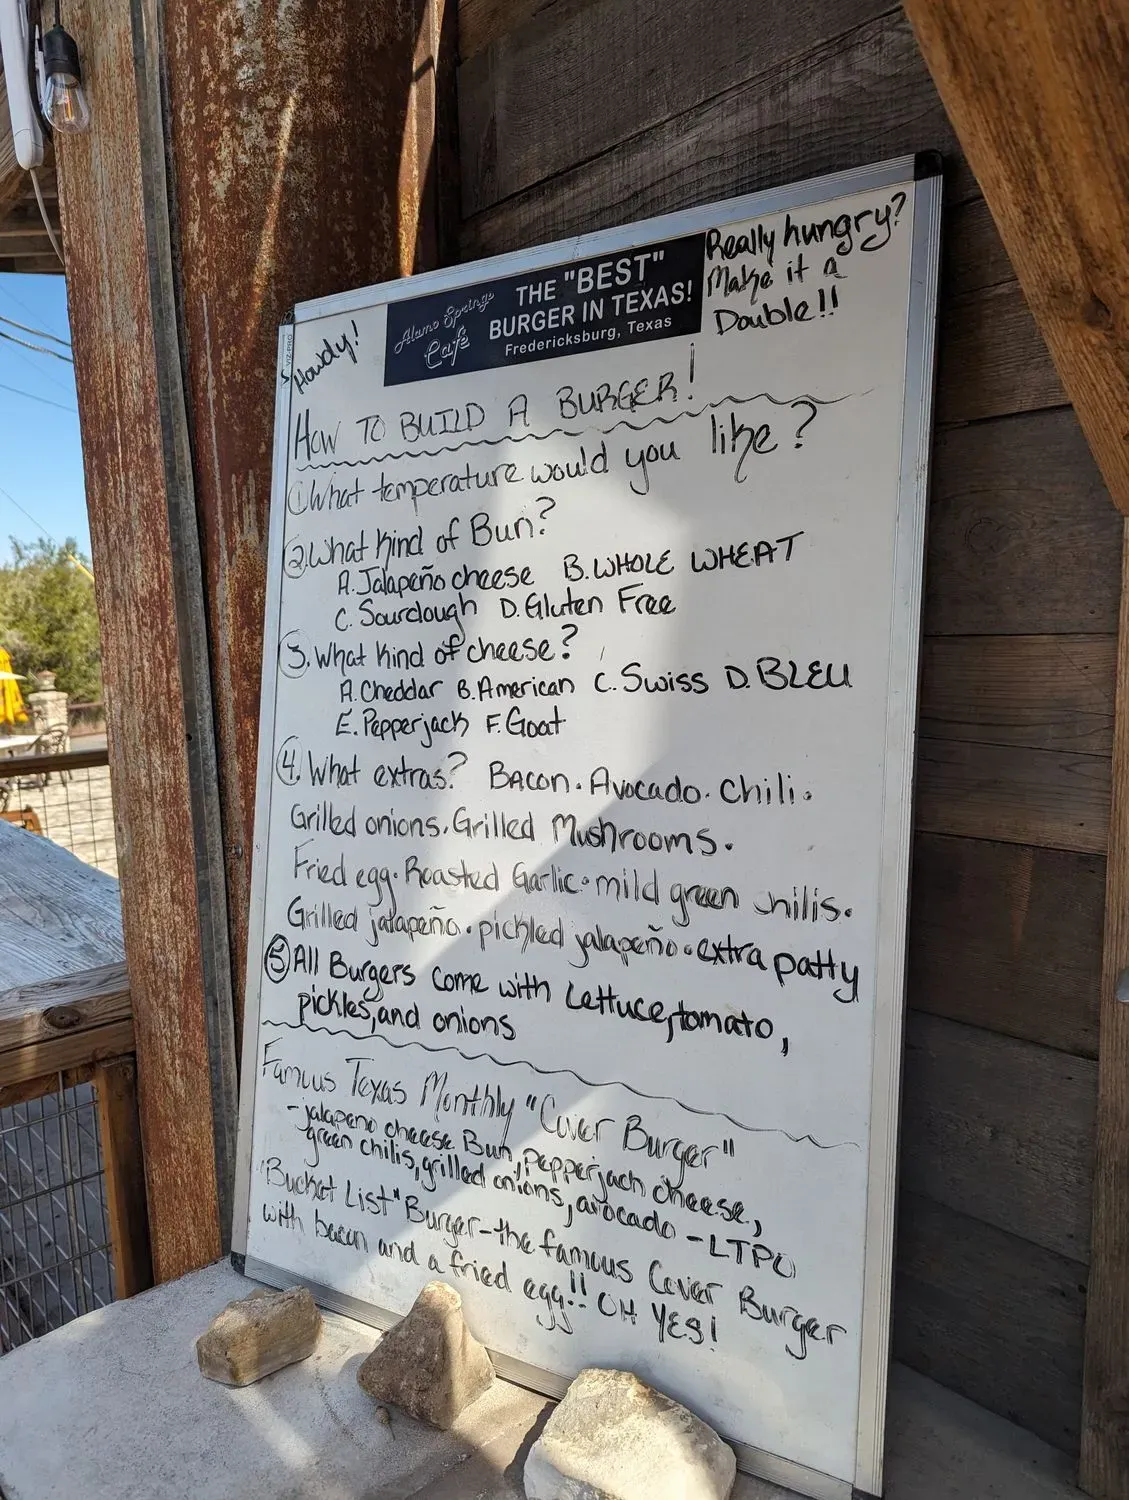 Howdy!
Alamo Springs
Café
THE "BEST"
BURGER IN TEXAS!
Fredericksburg, Texas
Really hungry?
Make it a
Double!!
VIZ-PRO
HOW TO BUILD A BURGER!
1 What temperature would you like?
2. What kind of Bun?
A. Jalapeño cheese B. WHOLE WHEAT
C. Sourdough D. Gluten Free
3. What kind of cheese?
A. Cheddar B. American C. Swiss D. BLEU
E. Pepperjack F. Goat
4. What extras? BACON · Avocado · Chili ·
Grilled onions · Grilled Mushrooms ·
Fried egg · Roasted Garlic · mild green chilis ·
Grilled jalapeño · pickled jalapeño · extra patty
5 All Burgers come with Lettuce, tomato,
pickles, and onions
Famous Texas Monthly "Cover Burger"
- jalapeno cheese Bun, pepperjack cheese,
green chilis, grilled onions, avocado - LTPO
"Bucket List" Burger - the famous Cover Burger
with bacon and a fried egg!! OH YES!